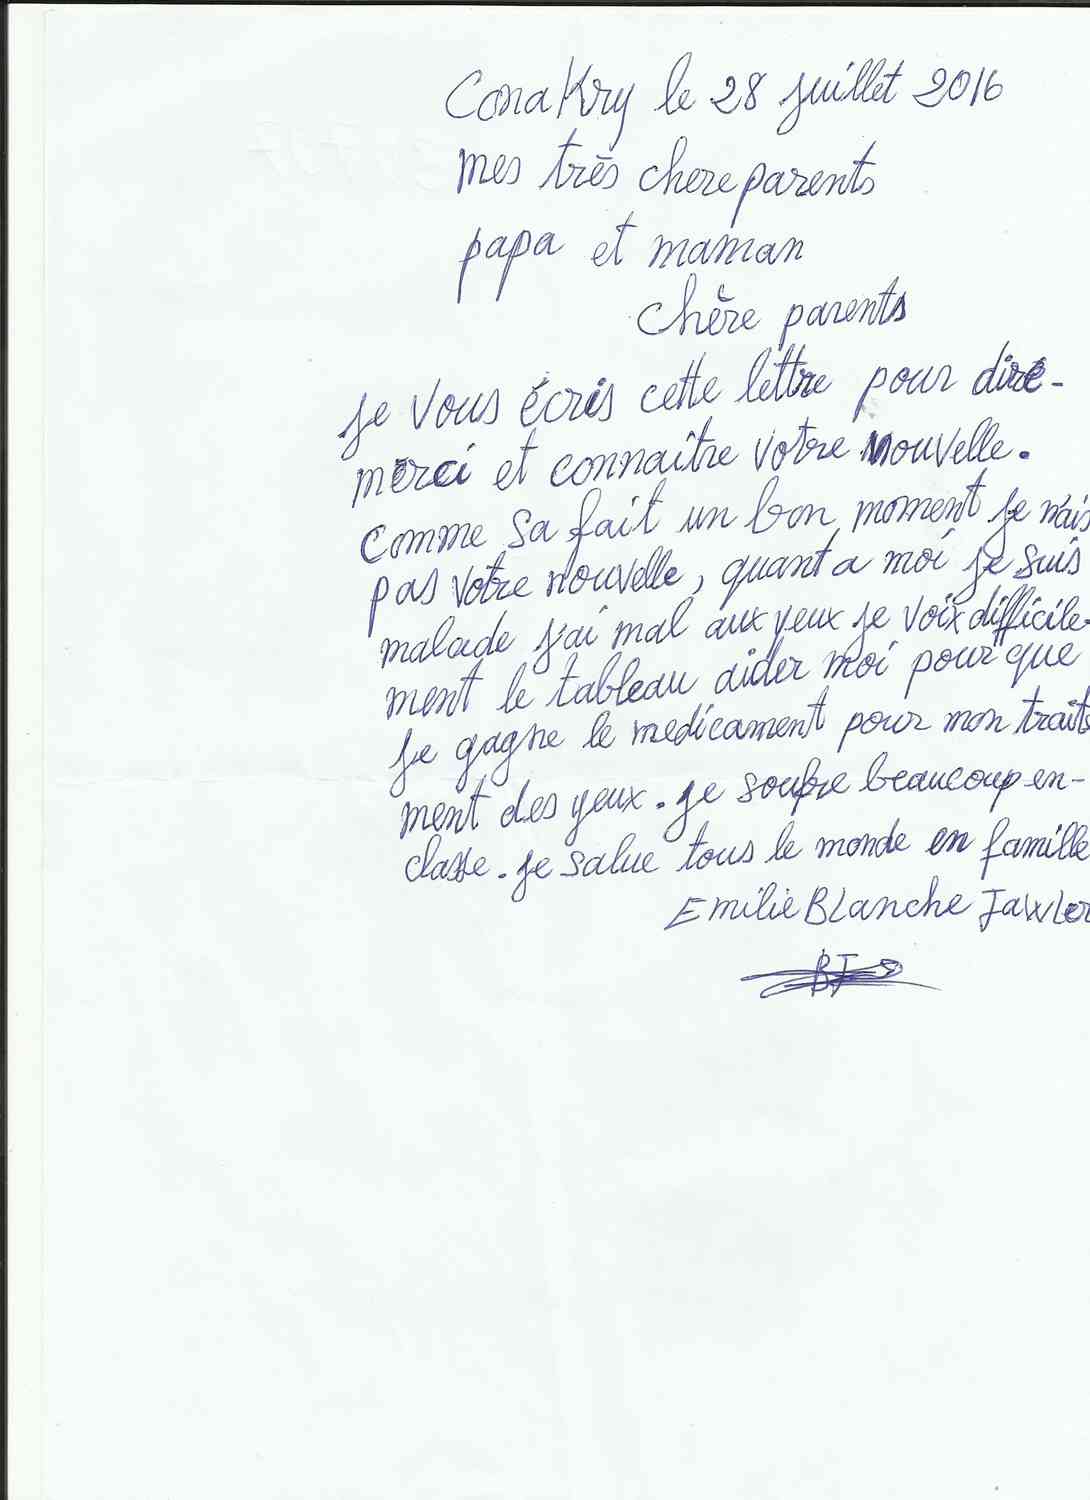 Conakry le 28 juillet 2016
mes très chere parents
papa et maman
chère parents
je vous écris cette lettre pour dire-
merci et connaître votre nouvelle.
comme sa fait un bon moment je n'ais
pas votre nouvelle, quant a moi je suis
malade j'ai mal aux yeux je voix difficile-
ment le tableau aider moi pour que
je gagne le medicament pour mon traite
ment des yeux. je soufre beaucoup en-
classe. je salue tous le monde en famille
Emilie Blanche
BF